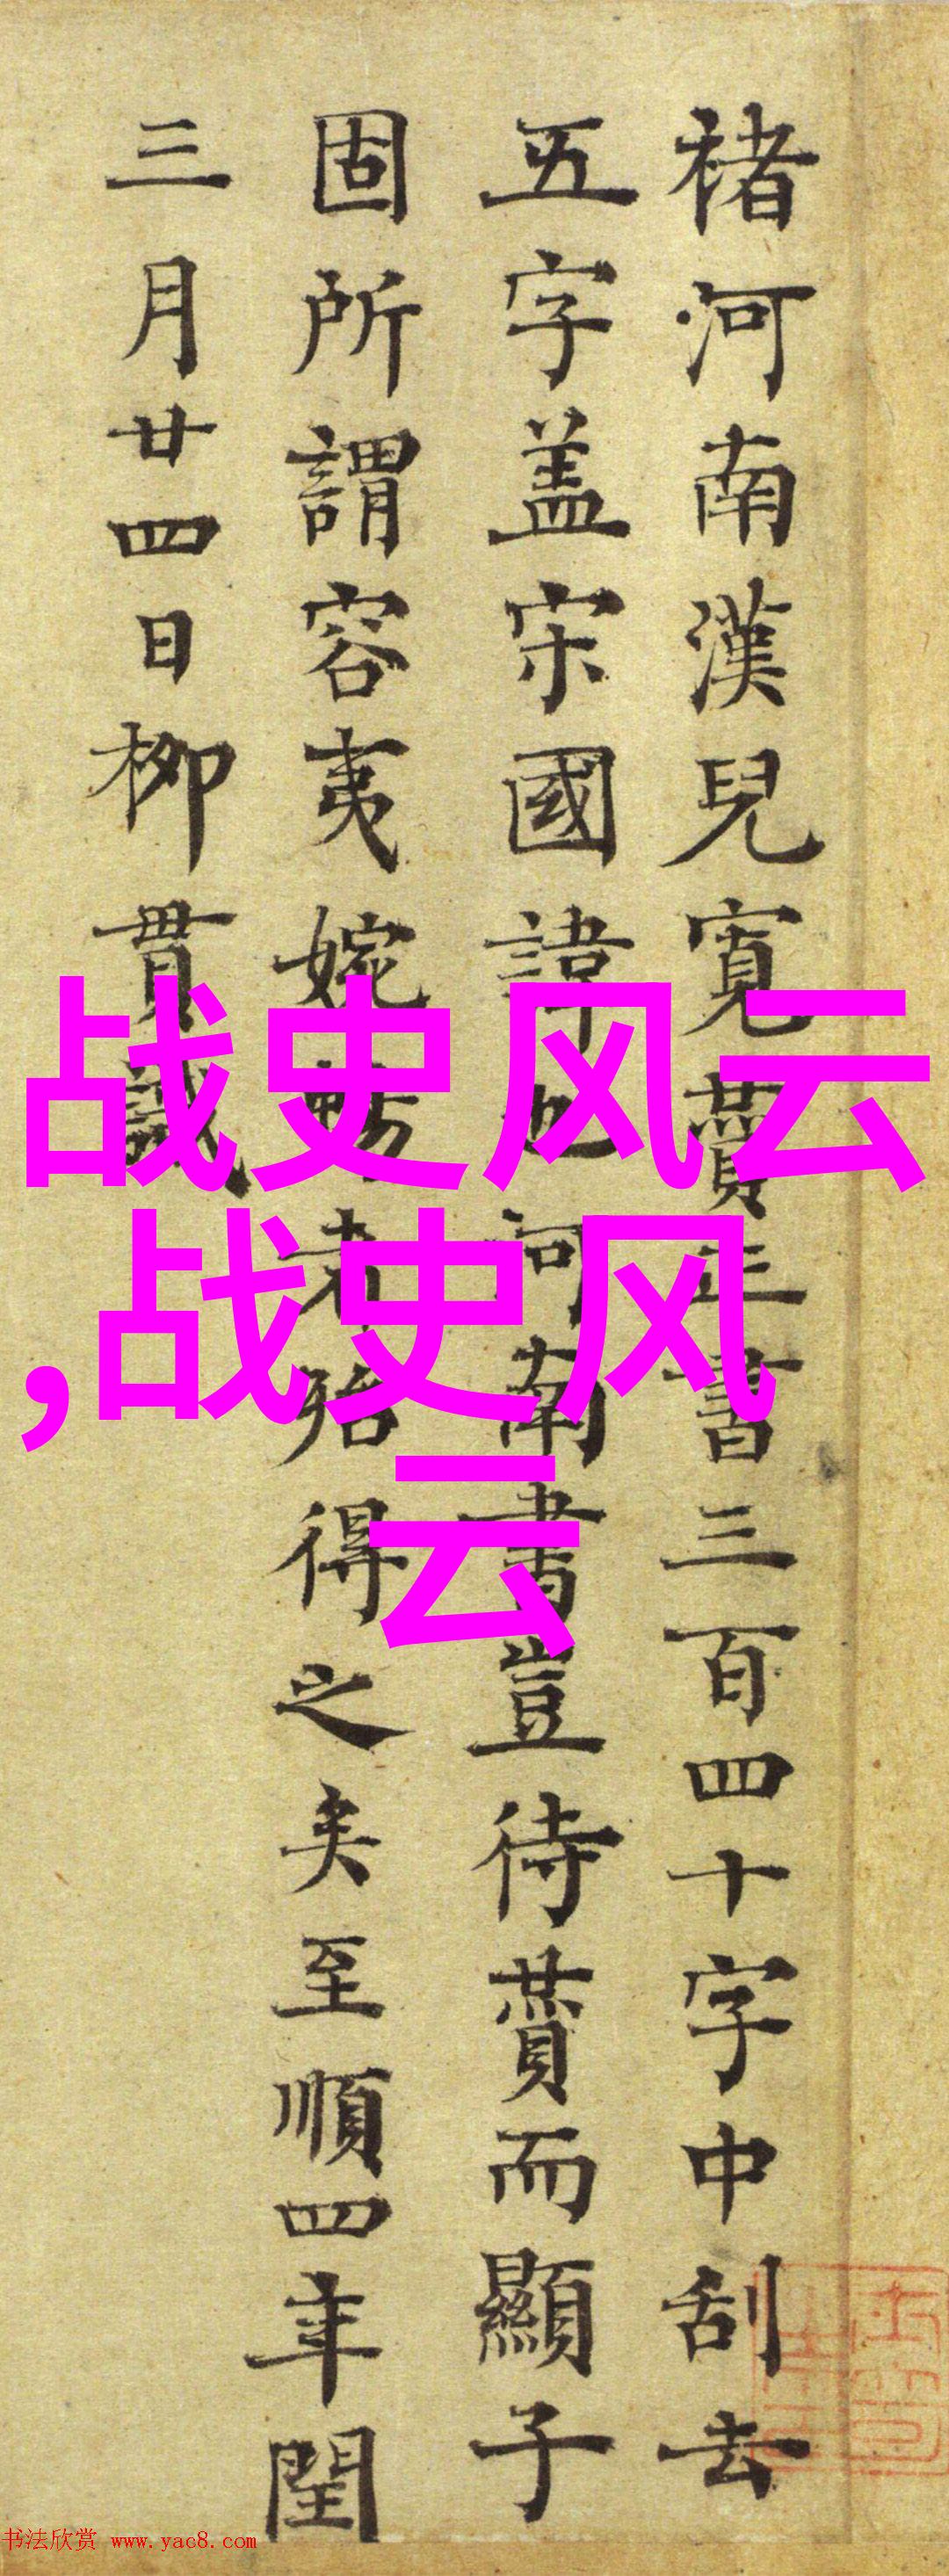 褚河南漢兒寬賛正書三百四十字中刮去
五字盖宋國諱也河南書豈待賛而顯子
固所謂容夷婉暢者殆得之矣至順四年閏
三月廿四日柳貫識
战史风云
,战史风
云
书法欣赏 www.yac8.com